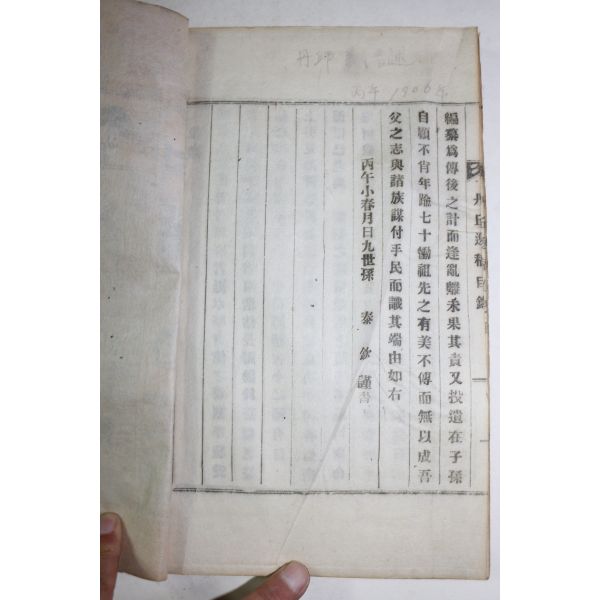 丙午 1906年
編纂爲傳後之計而逢亂離未果其責又投遺在子孫
自顧不肖年踰七十慟祖先之有美不傳而無以成吾
父之志與諸族謀付手民而識其端由如右
丙午小春月日九世孫 泰欽 謹書
丹邱遺稿目錄